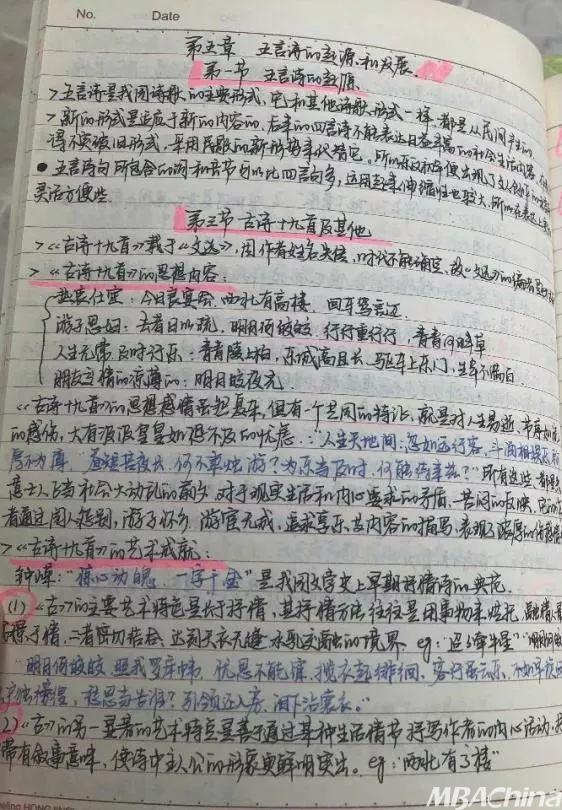 No.
Date
第五章 五言诗的起源和发展
第一节 五言诗的起源
>五言诗是我国诗歌的主要形式,它和其他诗歌形式一样,都是从民间产生的,
>新的形式是适应于新的内容的,后来的四言诗不能表达日益丰富的社会生活内容,
得不突破旧形式,采用民歌的新形势来代替它,所
●五言诗句所包含的词和音节可以比四言句多,运用起来伸缩性也较大,所
灵活方便些.
第三节 古诗十九首及其他
><<古诗十九首>>载于<<文选>>,因作者姓名失传,时代不能确定,故<<文选>>的编者
><<古诗十九首>>的思想内容:
热衷仕宦:今日良宴会 西北有高楼 回车驾言迈
游子思妇:去者日以疏,明月何皎皎,行行重行行,青青河畔草
人生无常 及时行乐:青青陵上柏,东城高且长,驱车上东门,生年不满百
朋友交情的凉薄的:明月皎夜光
<<古诗十九首>>的思想感情虽起复杂,但有一个共同的特征,就是对人生易逝,节序如流
的感伤,大有汲汲皇皇如恐不及的忧虑.:"人生天地间,忽如远行客,斗酒相娱乐,
厚不为薄""昼短苦夜长,何不秉烛游?为乐当及时,何能待来兹?"所有这些,都
意士人在当社会大动乱的前夕 对于现实生活和内心要求的矛盾、苦闷的反映,它的
者通过闺人怨别,游子怀乡,游宦无成,追求享乐,等内容的描写,表现了浓厚的
><<古诗十九首>>的艺术成就:
钟嵘:"惊心动魄,一字千金"是我国文学史上早期抒情诗的典范.
(1)<<古>>的主要艺术特色是长于抒情,其抒情方法往往是用事物来烘托,融情入
景于情,二者密切结合,达到天衣无缝,水乳交融的境界. eg:"迢迢牵牛星"
"明月何皎皎,照我罗床帏,忧愁不能寐,揽衣起徘徊,客行虽云乐,不如早旋
户独彷徨,愁思当告谁?引领还入房,泪下沾裳衣。"
(2)<<古>>的另一显著的艺术特点是善于通过某种生活情节抒写作者的内心活动,
带有叙事意味,使诗中主人公的形象更鲜明突出. eg:"西北有高楼"
MBAChina